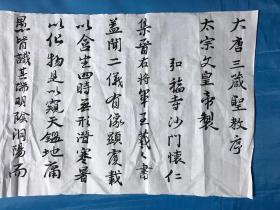 大唐三藏聖教序
太宗文皇帝製
弘福寺沙門懷仁
集晉右將軍王羲之書
蓋聞二儀有像顯覆載
以含生四時無形潛寒暑
以化物是以窺天鑑地庸
愚皆識其端明陰洞陽而